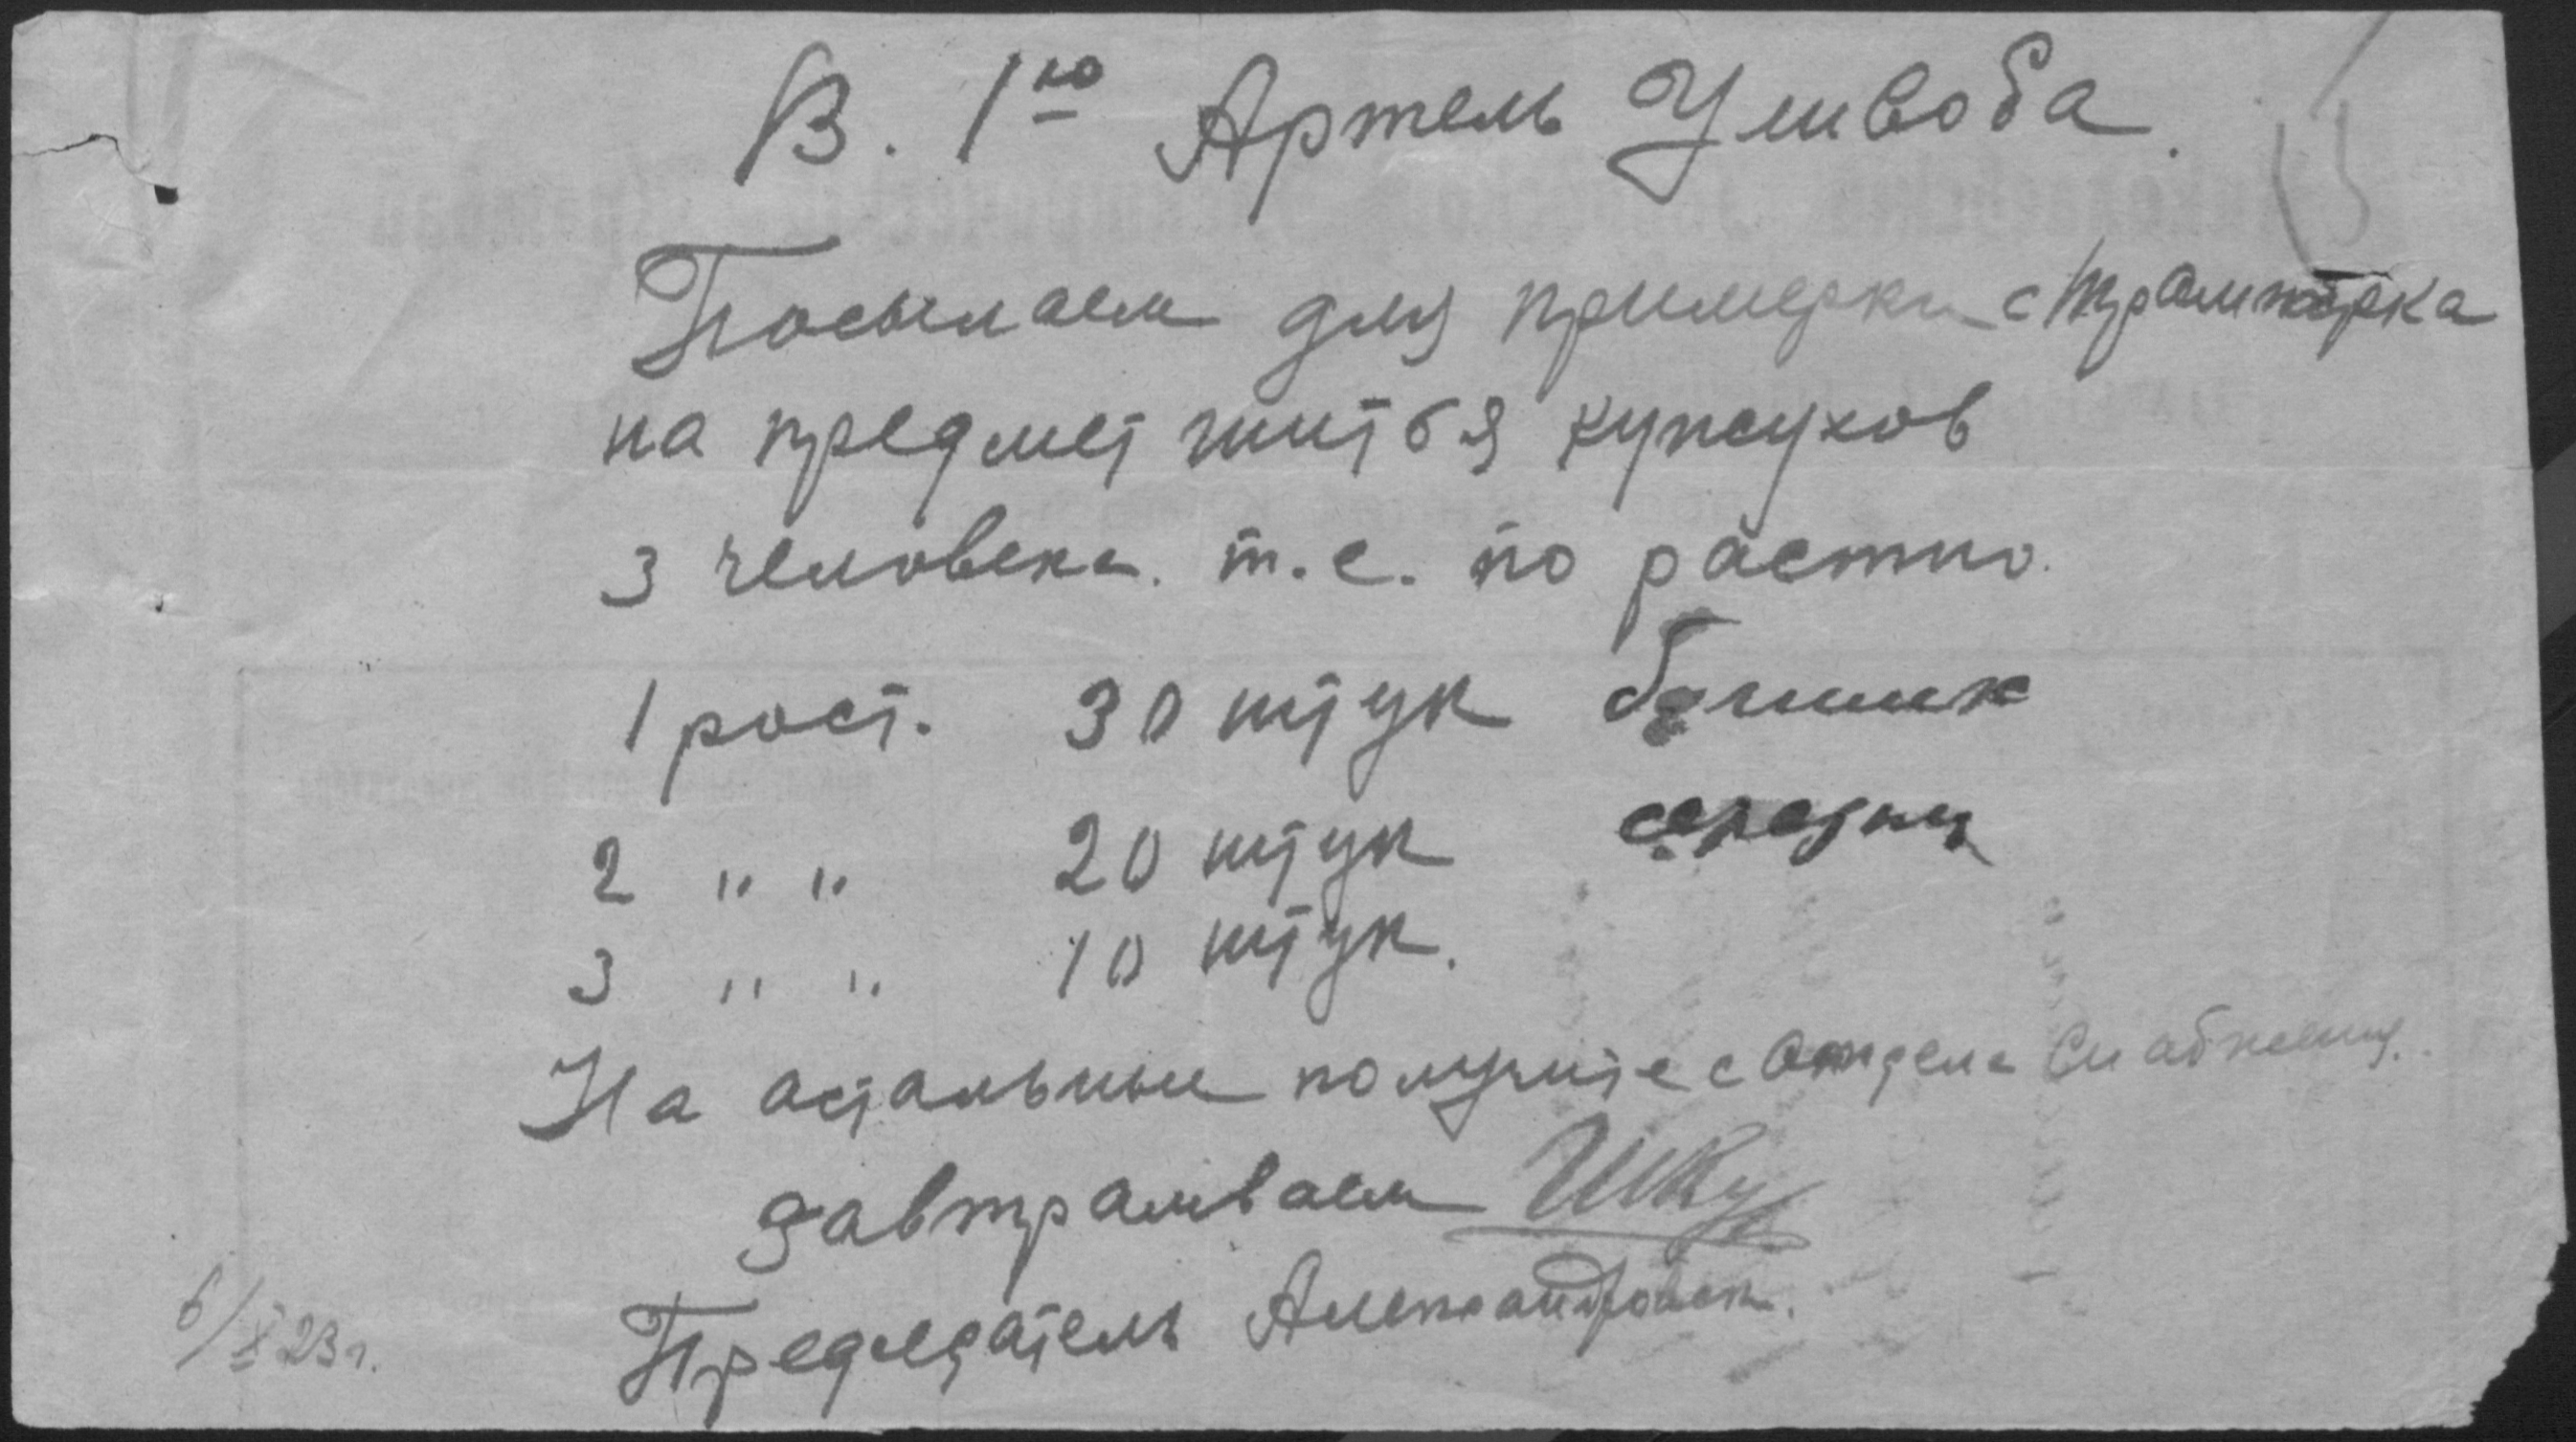 В. 1ую Артель Усивоба.
Посылаем для примерки с Трампарка
на предмет шитья кужухов
3 человека. т.е. по растио.
1 рост. 30 штук
2 " " 20 штук средны
3 " " 10 штук.
На астальные получите с Отдела Снабжения.
завтрамваем
Председатель Александровск.
6/X 23 г.